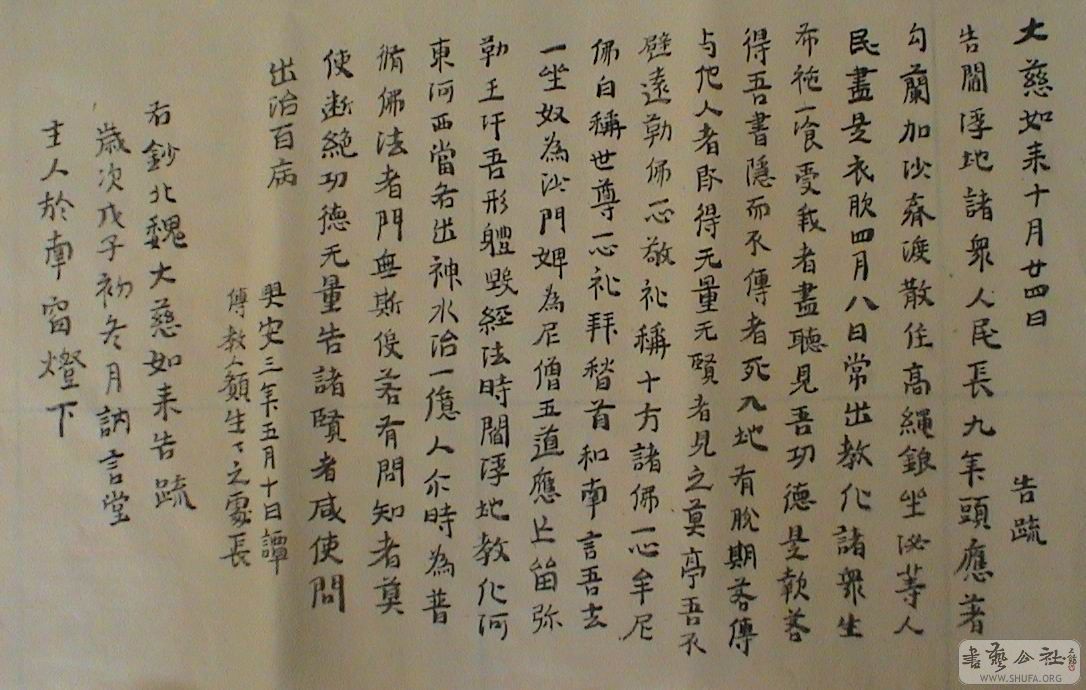 大慈如来十月廿四日 告疏
告閻浮地諸衆人民長九年頭應著
勾蘭加沙奔渡散住高繩鋃坐泌䓁人
民盡是衣服四月八日常出教化諸衆生
布施一飡受我者盡聽見吾功德是款若
得吾書隱而不傳者死入地有脫期若傳
与他人者即得无量无賢者見之莫亭吾不
遠勒佛一心敬礼稱十方諸佛一心牟尼
佛自稱世尊一心礼拜稽首和南言吾去
一坐奴為沙門婢為尼僧五道應上笛弥
勒王汙吾形軆毀經法時閻浮地教化河
東河西當若出神水治一億人尒時為普
脩佛法者門無斯侵若有問知者莫
使断絶功德无量告諸賢者咸使問
出治百病
興安三年五月十日譚
傅教人顏生之處長
右鈔北魏大慈如来告疏
歲次戊子初冬月訥言堂
主人於南窗燈下
書藝公社
WWW.SHUFA.ORG